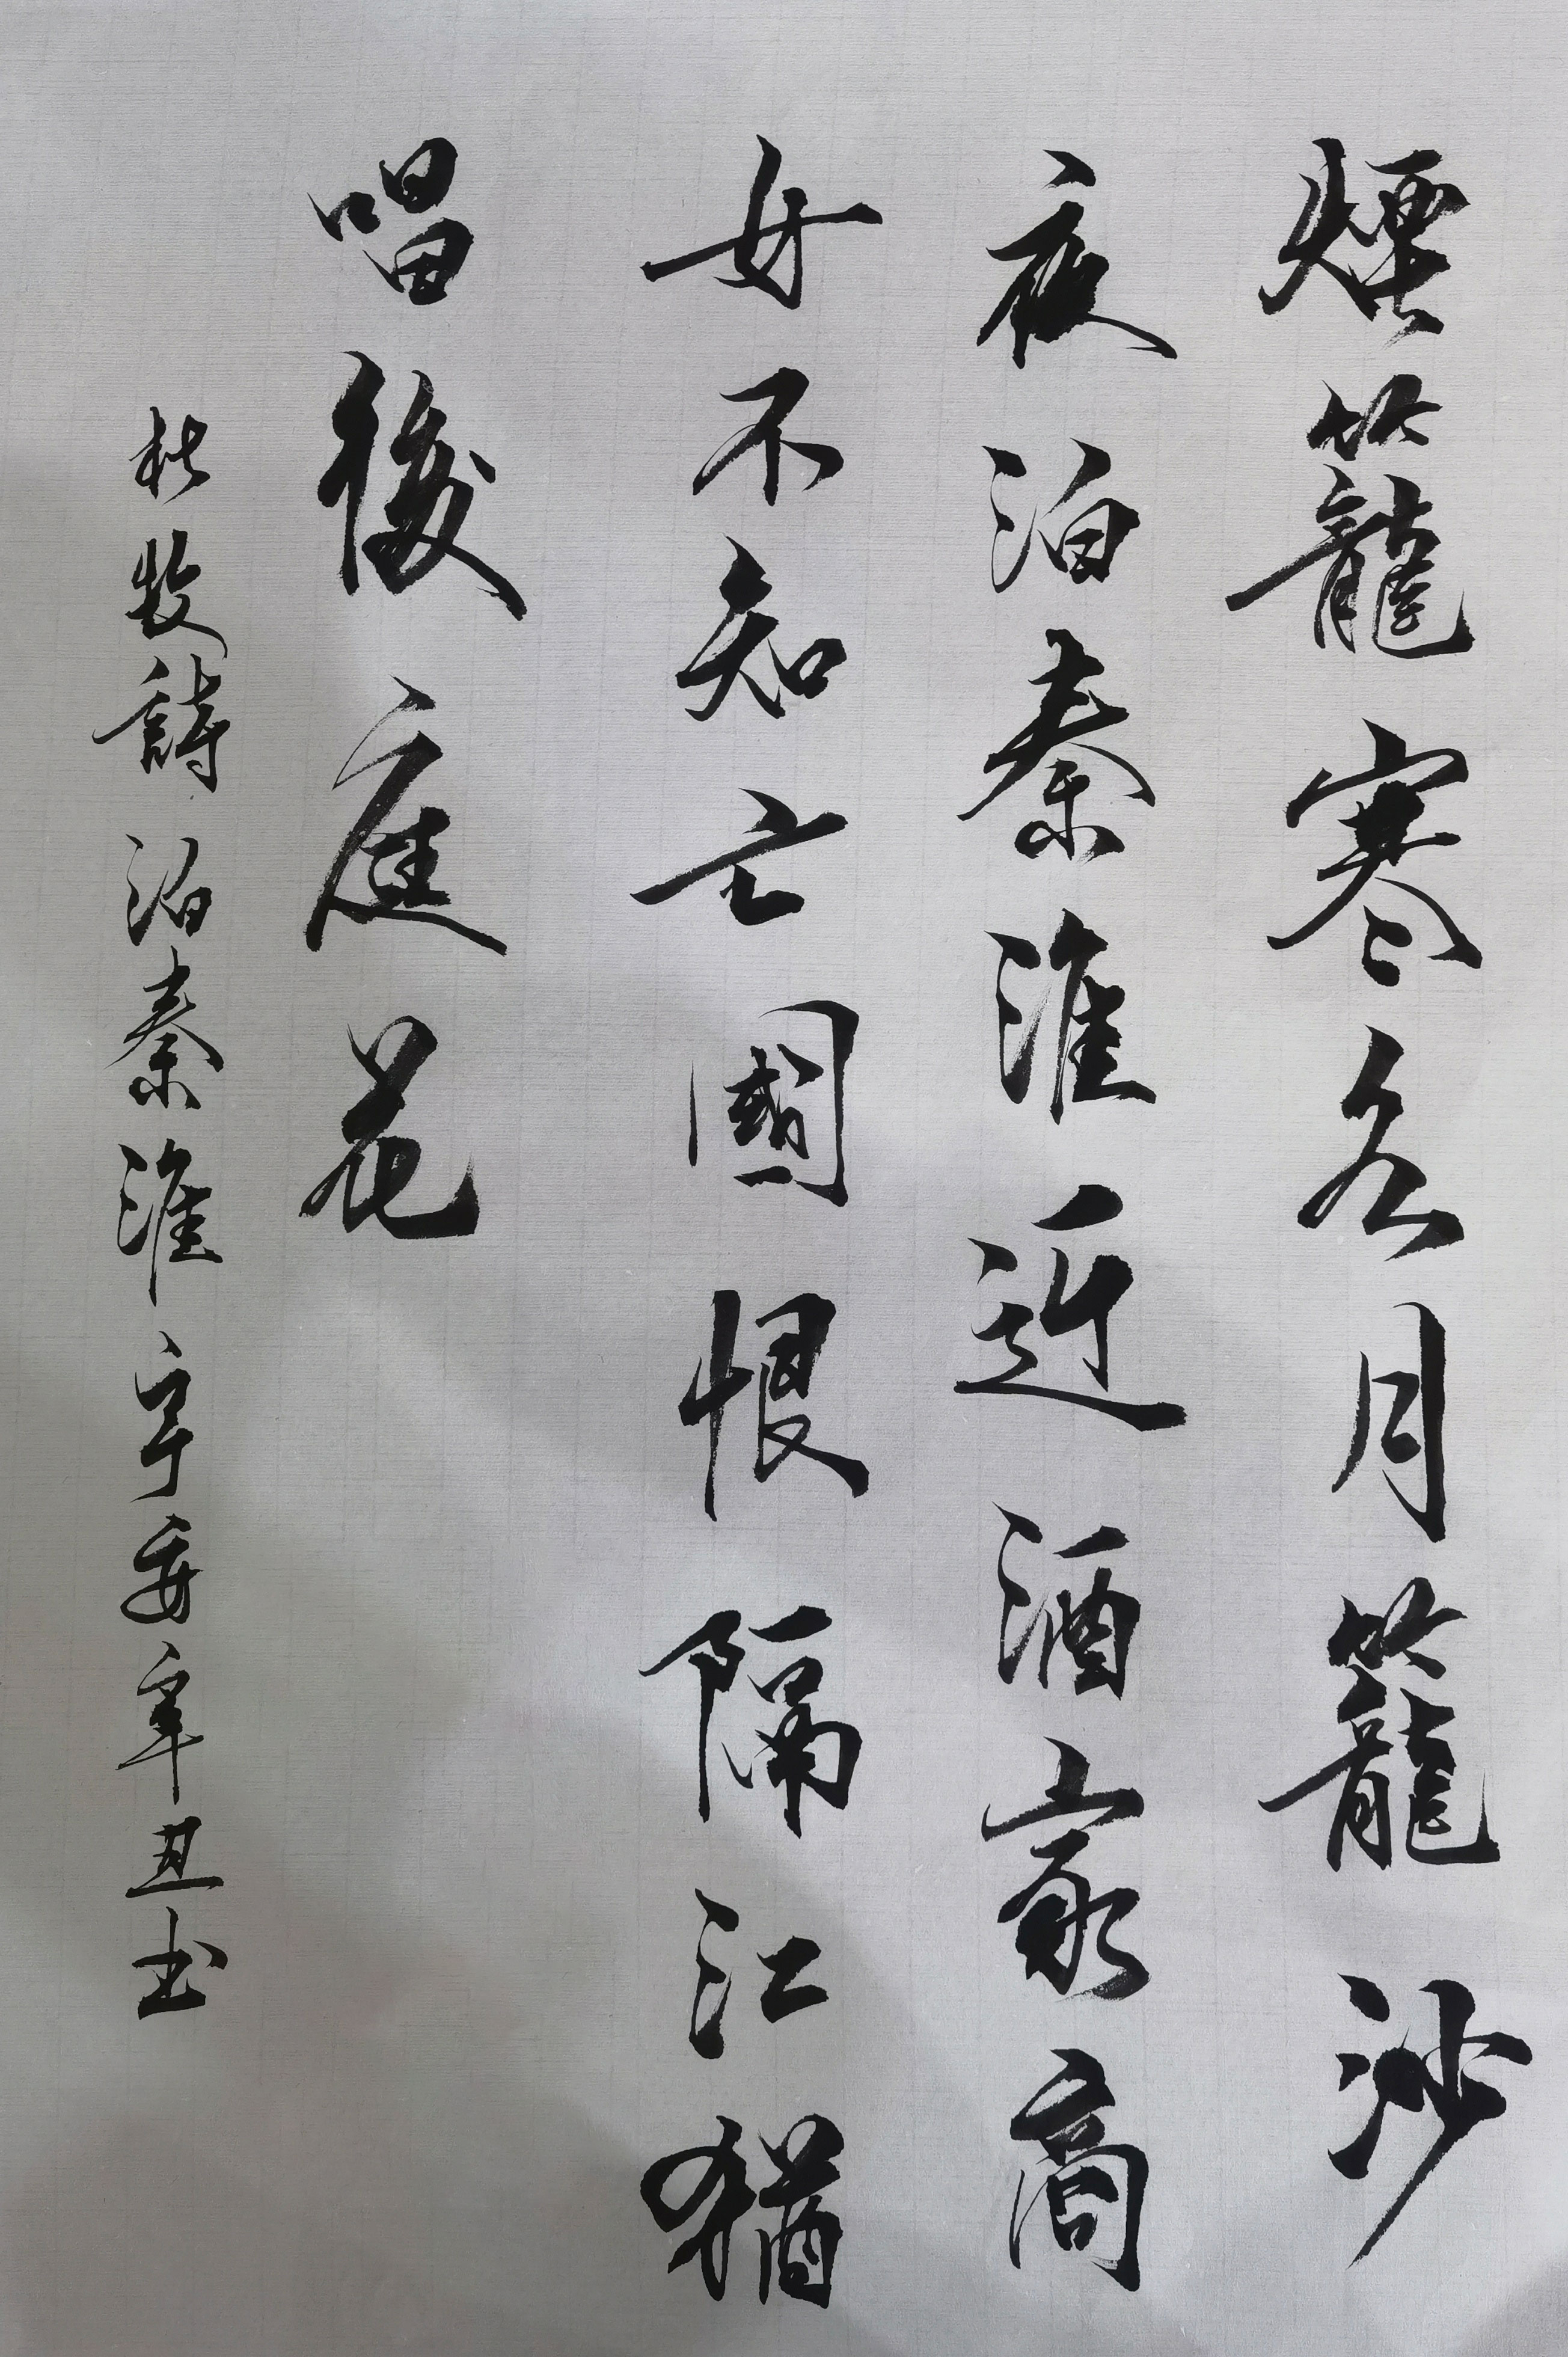 煙籠寒水月籠沙
夜泊秦淮近酒家商
女不知亡國恨隔江猶
唱後庭花
杜牧詩泊秦淮宇安辛丑书